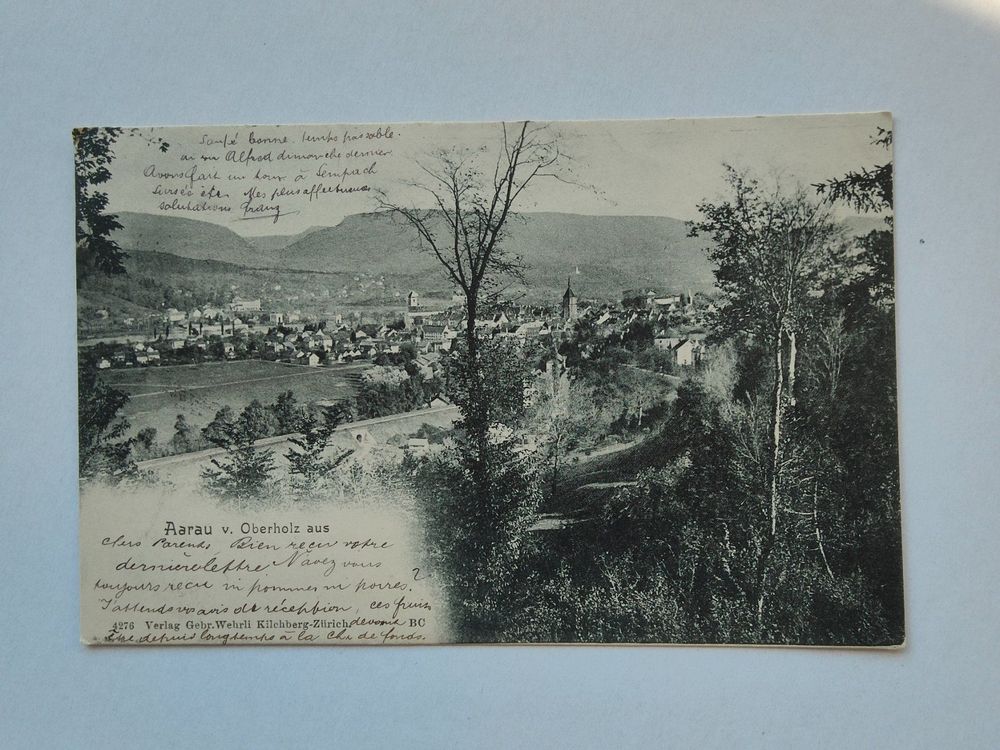 Santé bonne, temps passable.
ai vu Alfred dimanche dernier.
Avons fait un tour à Sempach
Sursée etc. Mes plus affectueuses
salutations Franz
Aarau v. Oberholz aus
Chers Parents, Bien reçu votre
dernière lettre N'avez vous
toujours recu ni pommes ni poires. ?
J'attends vos avis de réception, ces fruits
4276 Verlag Gebr. Wehrli Kilchberg-Zürich devront BC
être depuis longtemps à la Chx de fonds.